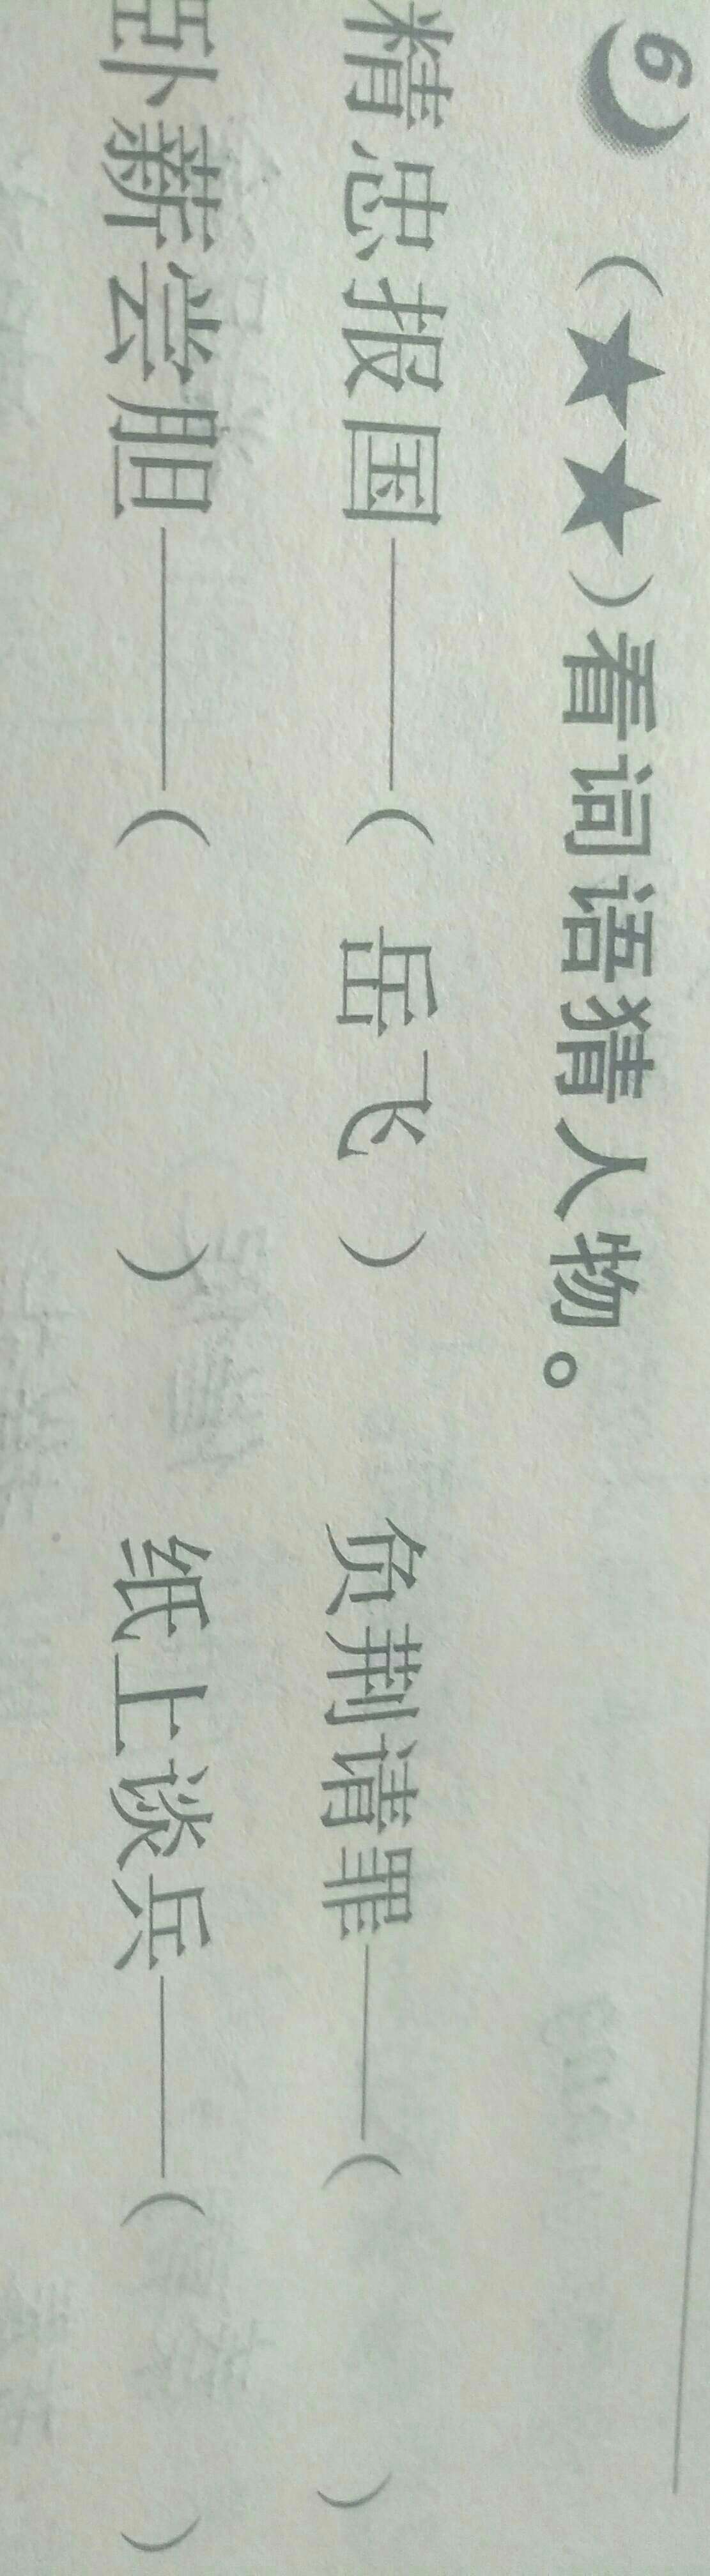 6 (★★)看词语猜人物。
精忠报国——( 岳飞 ) 负荆请罪——( )
卧薪尝胆——( ) 纸上谈兵——( )